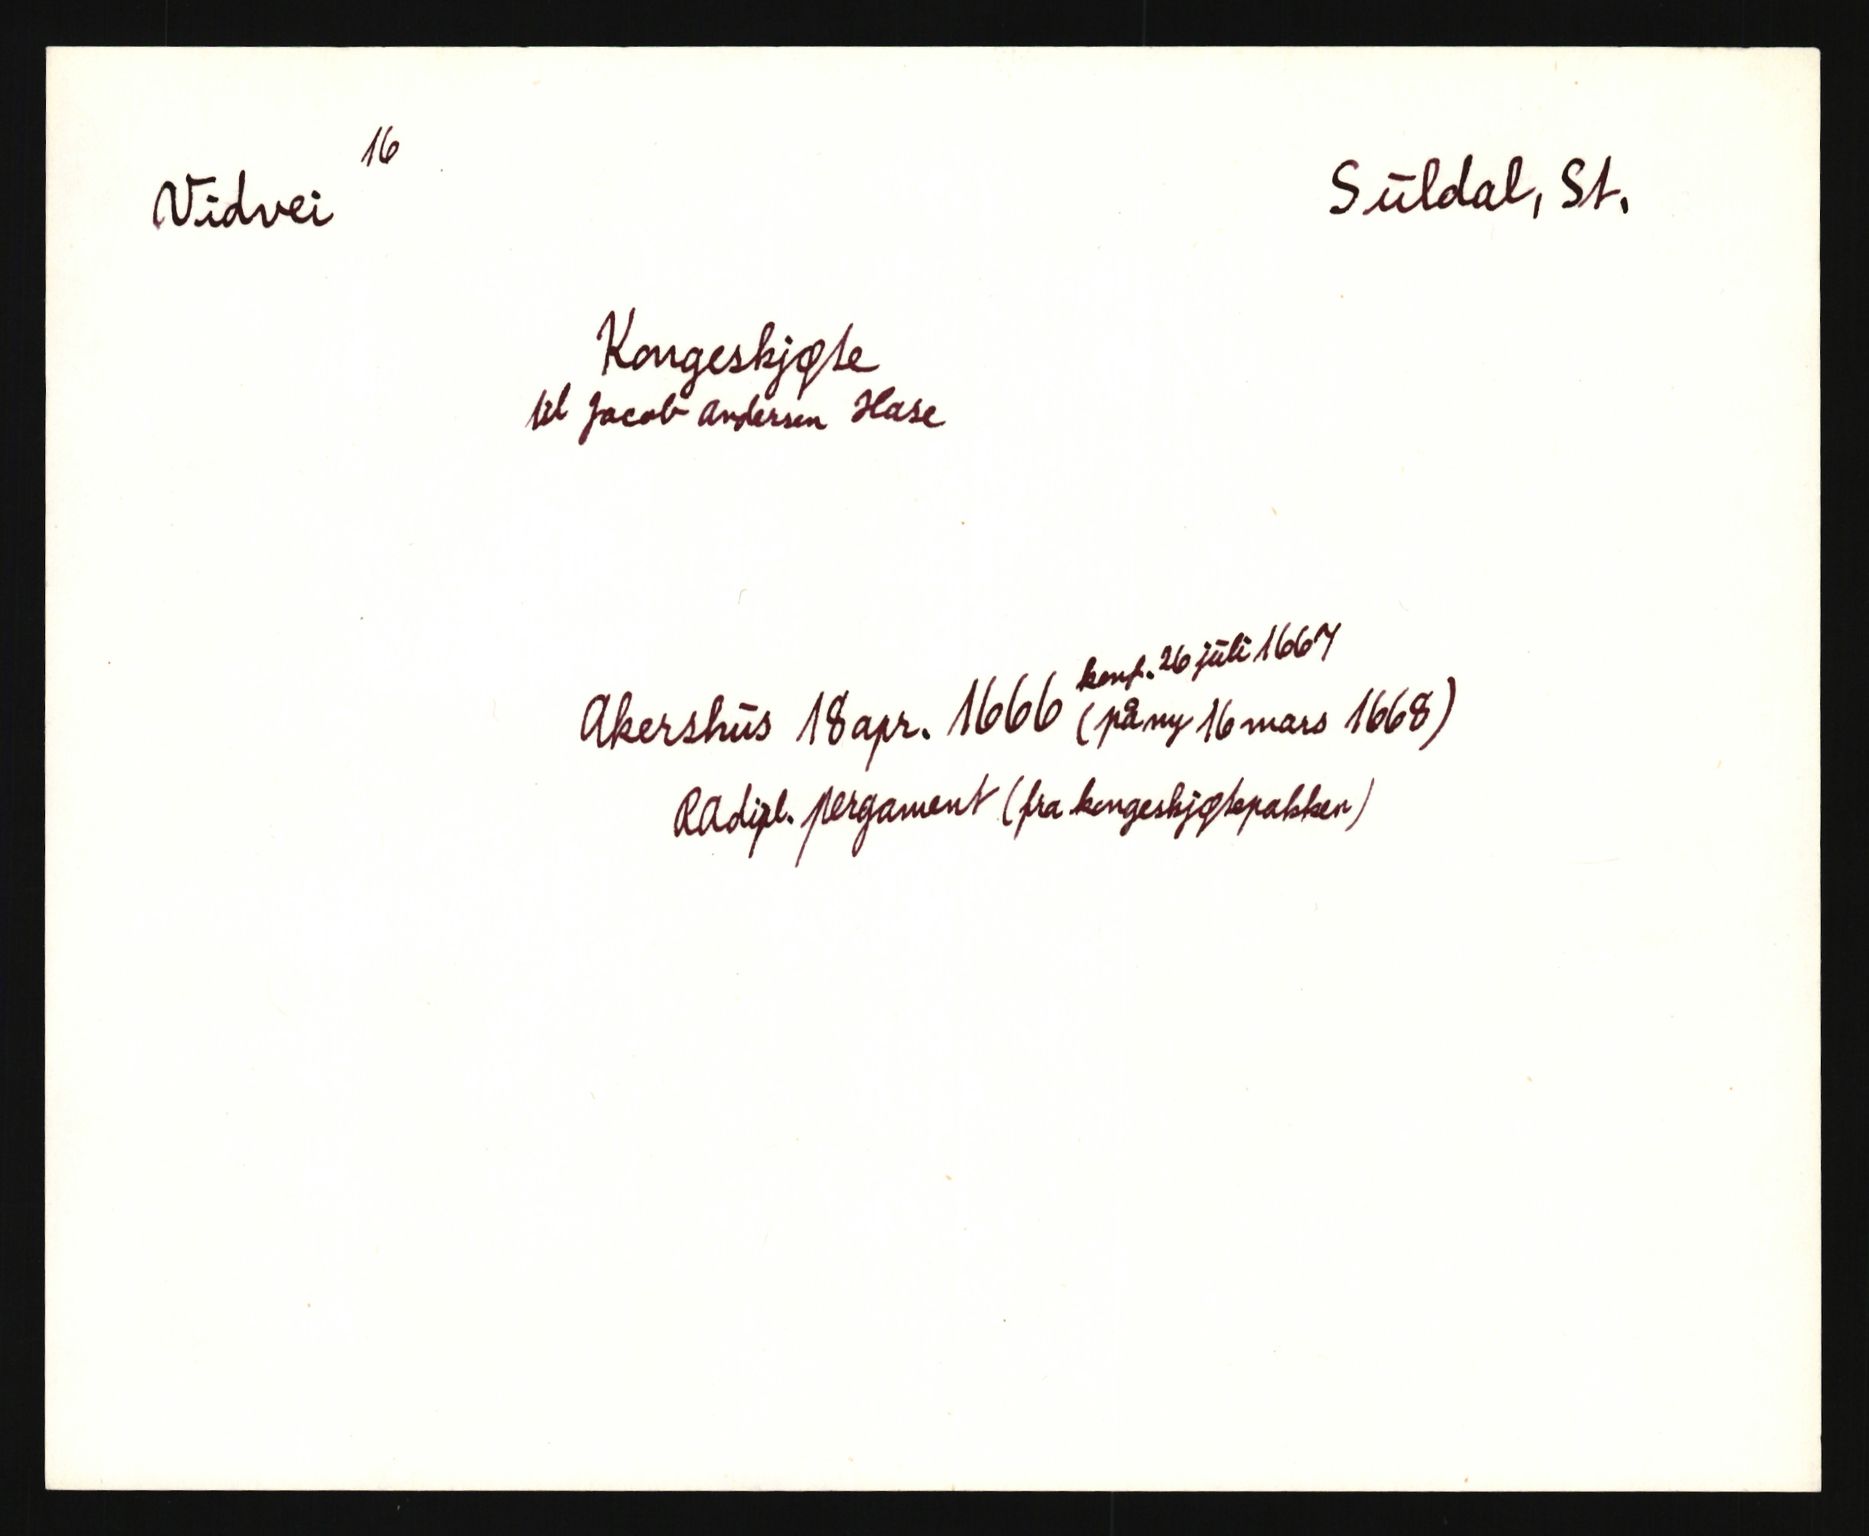 Vidvei 16
Sūldal, St.
Kongeskjøte
til Jacob Andersen Hase
konf. 26 jūli 1667
Akershūs 18 apr. 1666 (påny 16 mars 1668)
RAdipl. pergament (fra kongeskjøtepakken)